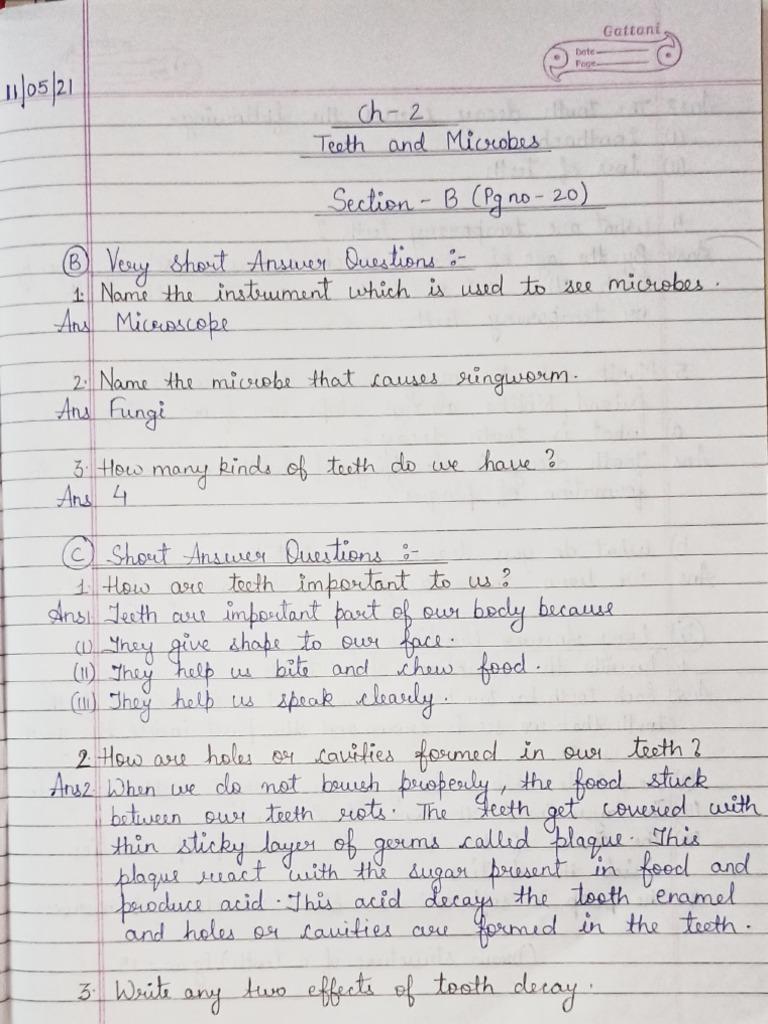 Gattani
Date
Page
11/05/21
Ch-2
Teeth and Microbes
Section - B (Pg no - 20)
(B) Very Short Answer Questions :-
1. Name the instrument which is used to see microbes.
Ans Microscope
2. Name the microbe that causes ringworm.
Ans Fungi
3. How many kinds of teeth do we have?
Ans 4
(C) Short Answer Questions :-
1. How are teeth important to us?
Ans1 Teeth are important part of our body because
(i) They give shape to our face.
(ii) They help us bite and chew food.
(iii) They help us speak clearly.
2. How are holes or cavities formed in our teeth?
Ans2. When we do not brush properly, the food stuck
between our teeth rots. The teeth get covered with
thin sticky layer of germs called plaque. This
plaque react with the sugar present in food and
produce acid. This acid decays the tooth enamel
and holes or cavities are formed in the teeth.
3. Write any two effects of tooth decay.